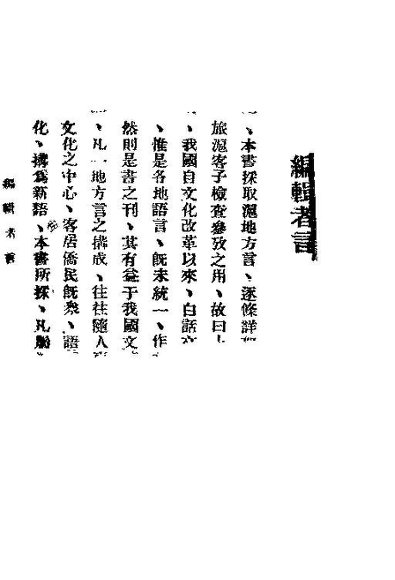 編輯者言
、本書採取滬地方言、逐條詳
旅滬客子檢查參攷之用、故曰
、我國自文化改革以來、白話
、惟是各地語言、旣未統一、作
然則是書之刊、其有益于我國文
、凡一地方言之搆成、往往隨人
文化之中心、客居僑民旣衆、語
化、搆爲新語、本書所採、凡
編輯者言